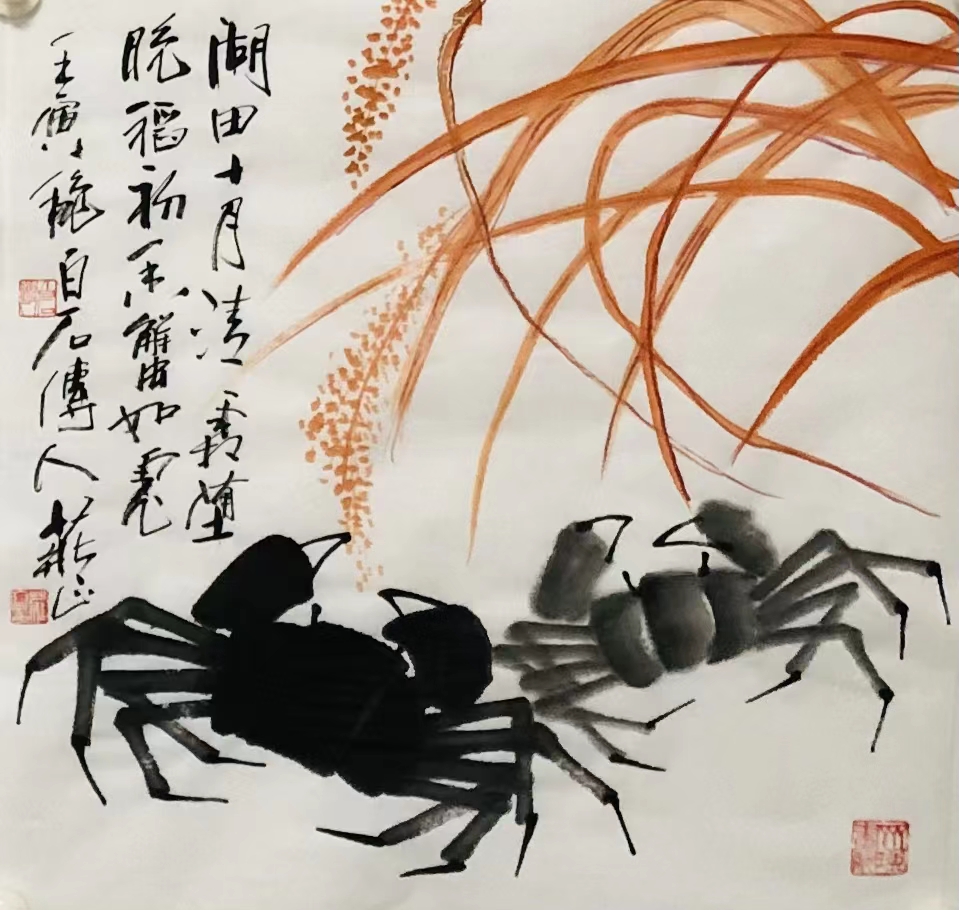 湖田十月清霜堕
晚稻初香蟹如虎
壬寅龝白石傳人